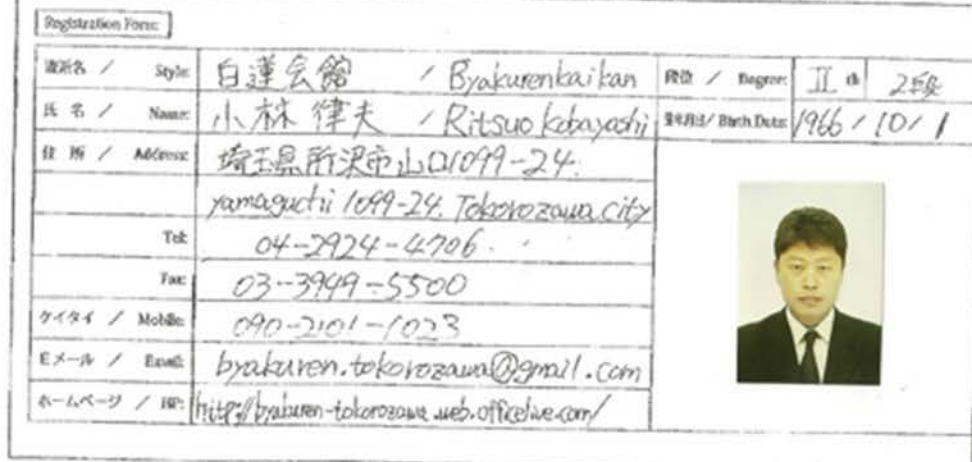 Registration Form:
流派名 / Style: 白蓮会館 / Byakurenkaikan 段位 / Degree: II th 2段
氏名 / Name: 小林 律夫 / Ritsuo Kobayashi 生年月日 / Birth Date: 1966 / 10 / 1
住所 / Address: 埼玉県所沢市山口1099-24.
yamaguchi 1099-24. Tokorozawa city
Tel: 04-2924-4706.
Fax: 03-3949-5500
ケイタイ / Mobile: 090-2101-1023
Eメール / Email: byakuren.tokorozawa@gmail.com
ホームページ / HP: http://byakuren-tokorozawa.web.officelive.com/